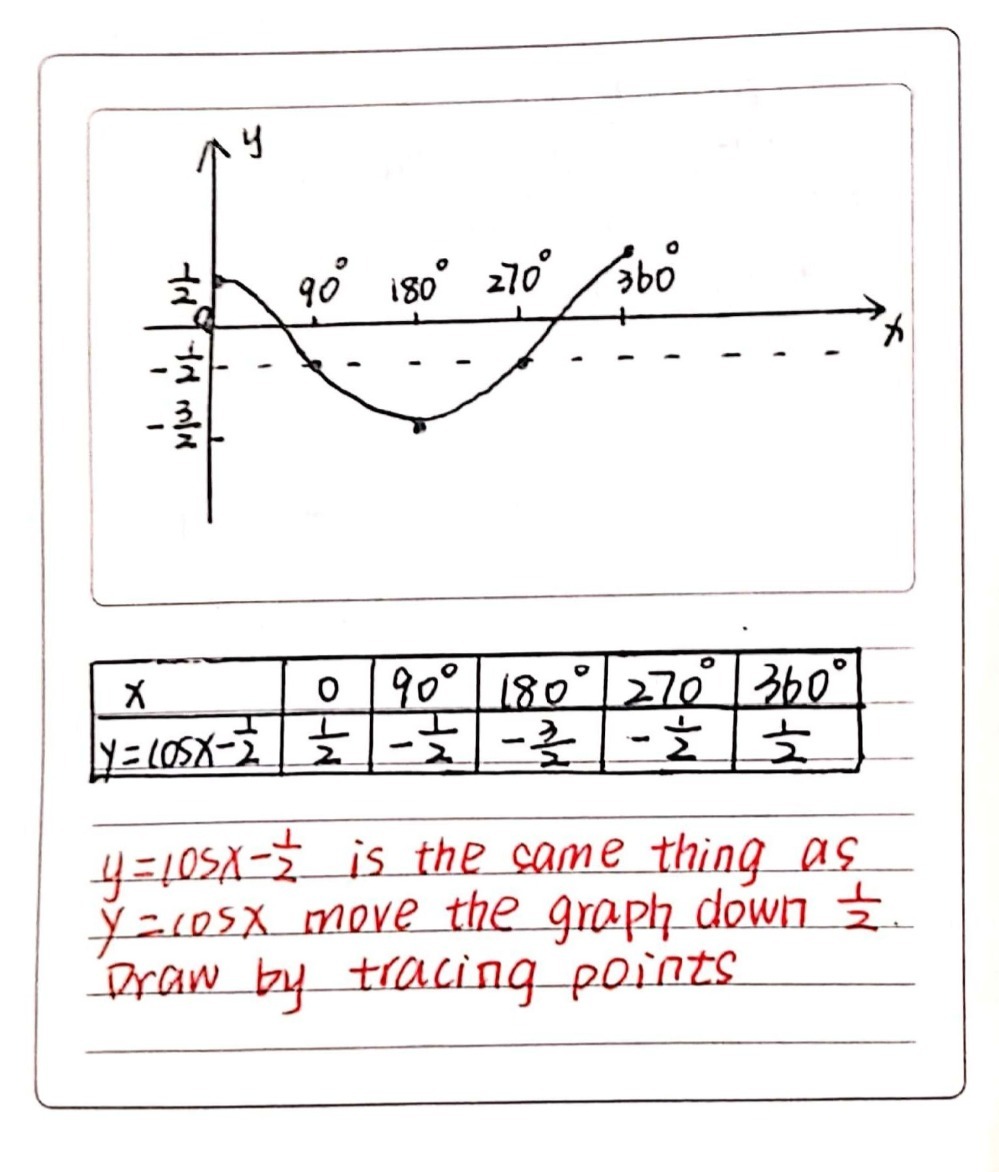 y
1/2 90° 180° 270° 360°
0
x
-1/2
-3/2
x 0 90° 180° 270° 360°
y=cosx-1/2 1/2 -1/2 -3/2 -1/2 1/2
y=cosx-1/2 is the same thing as
y=cosx move the graph down 1/2.
Draw by tracing points